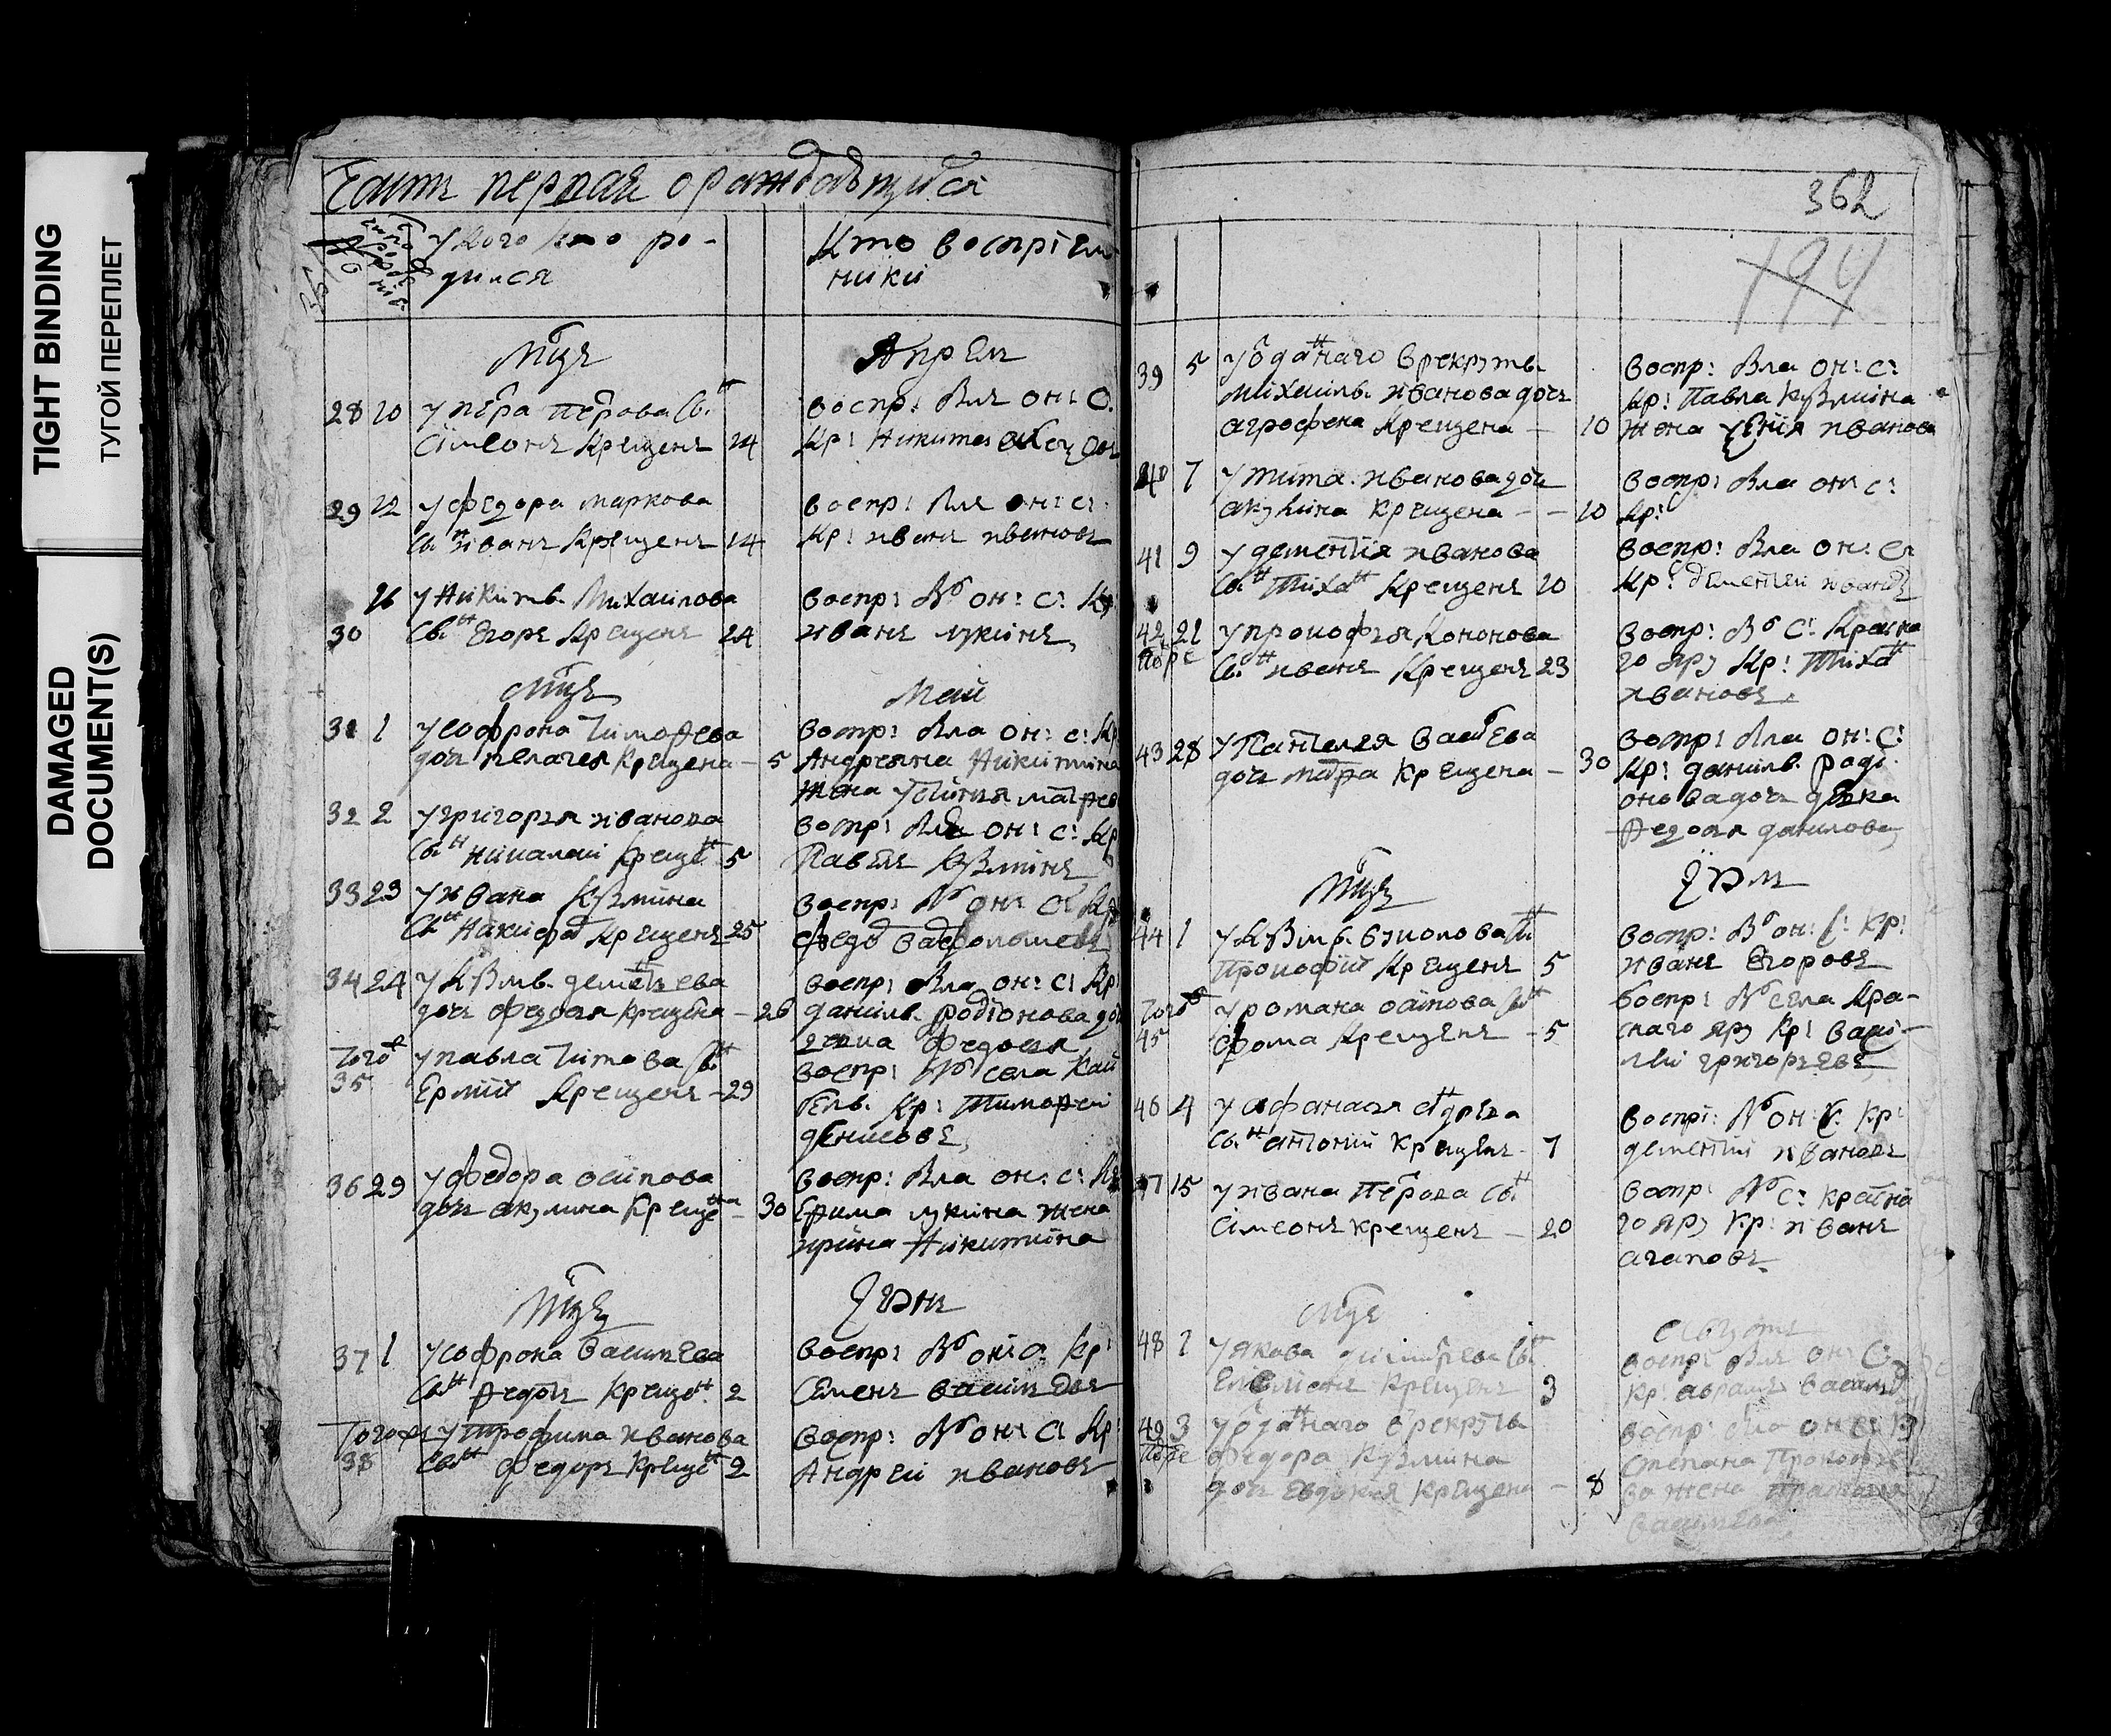 TIGHT BINDING
ТУГОЙ ПЕРЕПЛЕТ
DAMAGED
DOCUMENT(S)
Часть первая о раждающихся
У кого кто ро-
дился
Кто воспрiем
ники
Мцъ Апрель
28 10 у петра петрова сынъ
Сiмеонъ Крещенъ 14
воспр: былъ он: с.
Кр: Никита
29 12 у федора маркова
сынъ иванъ Крещенъ 14
воспр: былъ он: с:
Кр: иванъ ивановъ
26 у Никиты Михаилова
30 сынъ Егоръ Крещенъ 24
воспр: бы он: с: Кр
иванъ лукинъ
Мцъ Май
31 1 у софрона тимофеева
дочь пелагея Крещена - 5
воспр: была он: с: Кр
Андреяна Никитина
жена устиния
32 2 у григорья иванова
сынъ николаи Крещенъ 5
воспр: он: с: Кр
Павелъ Кузминъ
33 23 у ивана Кузмина
сынъ Никифоръ Крещенъ 25
воспр: бы он: с: Кр
федоръ
34 24 у Кузмы дементьева
дочь федосья крещена - 26
воспр: была он: с: Кр
данилы родiонова
федосья
тогожъ у павла титова сынъ
35 Ермiй Крещенъ - 29
воспр: бы села
Кр: Тимофеи
денисовъ
36 29 у федора осипова
дочь акулина Крещена - 30
воспр: была он: с: Кр
Ефима лукина жена
ирина Никитина
Мцъ Iюнь
37 1 у софрона васильева
сынъ федотъ Крещенъ 2
воспр: бы он: с: Кр:
Семенъ васильевъ
тогожъ у трофима иванова
38 сынъ федоръ Крещенъ 2
воспр: бы он: с: Кр
Андреи ивановъ
362
194
39 5 у отданаго в рекруты
михаилы иванова дочь
агрофена Крещена - 10
воспр: была он: с:
кр: Павла Кузмина
жена иванова
40 7 у тита иванова дочь
акулина Крещена - - 10
воспр: была он: с:
Кр:
41 9 у дементiя иванова
сынъ Тихонъ Крещенъ 10
воспр: была он: с:
Кр: дементеи ивановъ
42 21 у прокофья Кононова
сынъ иванъ Крещенъ 23
воспр: бы с: Красна
го яру Кр: Тихонъ
ивановъ
43 28 у Пантелея васильева
дочь Крещена - 30
воспр: была он: с:
Кр: данилы роди
онова дочь девка
федосья данилова
Мцъ Iюль
44 1 у Кузмы сынъ
Прокофiй Крещенъ 5
воспр: бы он: с: Кр:
иванъ Егоровъ
тогожъ у романа осипова сынъ
45 фома Крещенъ - 5
воспр: бы села Кра-
снаго яру Кр: васи-
лiи григорьевъ
46 4 у афанасья андреева
сынъ антонiй Крещенъ - 7
воспр: бы он: с: Кр:
дементiи ивановъ
47 15 у ивана петрова сынъ
Сiмеонъ крещенъ - 20
воспр: бы с: красна
го яру Кр: иванъ
агаповъ
Мцъ Августъ
48 1 у якова димитрева сынъ
Крещенъ 3
воспр: былъ он: с:
Кр: аврамъ
49 3 у отданаго в рекруты
федора Кузмина
дочь Евдокея Крещена - 8
воспр: была он: с: Кр
степана Прокофье
ва жена
васильева